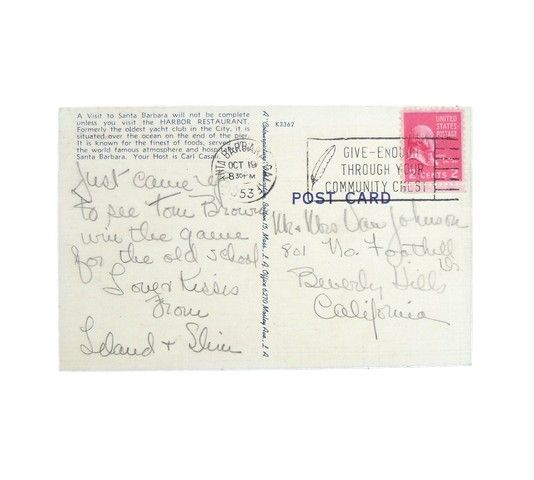 A Visit to Santa Barbara will not be complete
unless you visit the HARBOR RESTAURANT.
Formerly the oldest yacht club in the City, it is
situated over the ocean on the end of the pier.
It is known for the finest of foods, served in
the world famous atmosphere and hospitality of
Santa Barbara. Your Host is Carl Casar
Just came up
to see Tom Brown
win the game
for the old school
Love & Kisses
From
Leland & Slim
K3362
SANTA BARBARA
OCT 19
8 30 PM
1953
GIVE-ENOUGH
THROUGH YOUR
COMMUNITY CHEST
UNITED
STATES
POSTAGE
CENTS 2
POST CARD
Mr & Mrs Van Johnson
801 No. Foothill
Beverly Hills
California